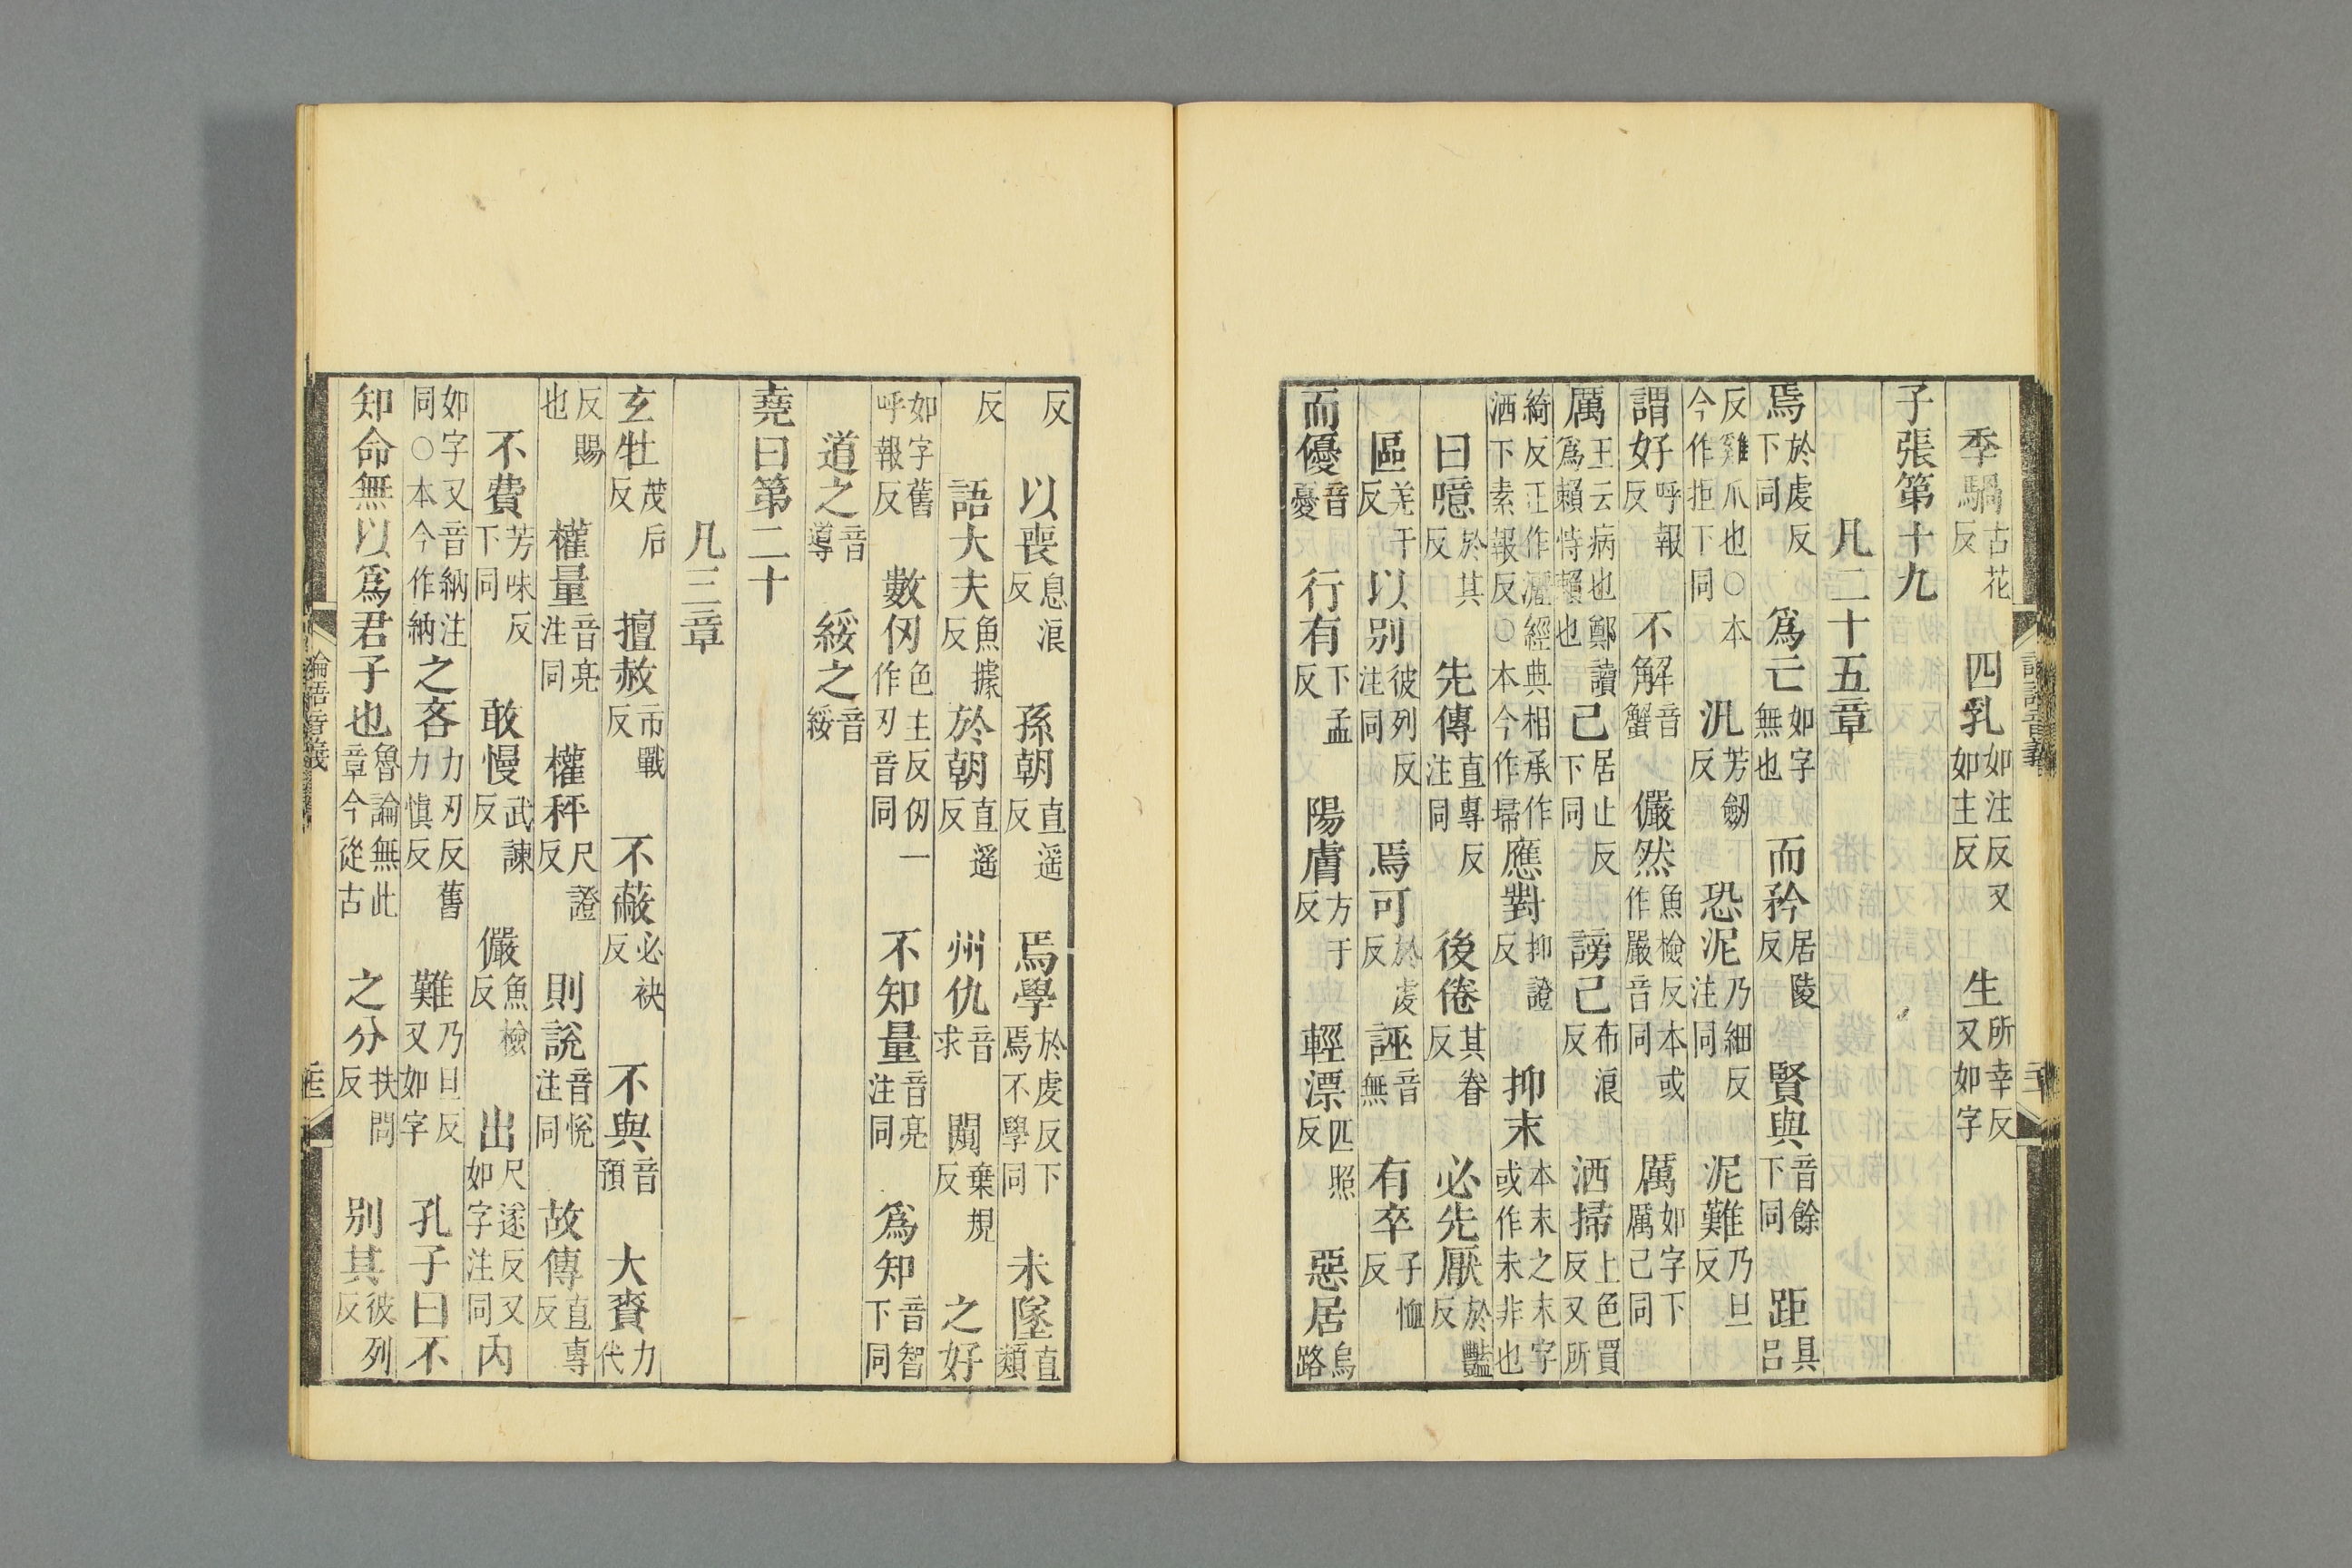 季騧古花反 四乳如注反又如主反 生所幸反又如字
子張第十九
凡二十五章
焉於虔反下同 爲亡如字無也 而矜居陵反 賢與音餘下同 距具呂
反雞爪也○本今作拒下同 汎芳劒反 恐泥乃細反注同 泥難乃旦反
謂好呼報反 不解音蟹 儼然魚檢反本或作嚴音同 厲如字下厲己同
厲王云病也鄭讀爲賴恃賴也 己居止反下同 謗己布浪反 洒掃上色買反又所
綺反正作灑經典相承作洒下素報反○本今作埽 應對抑證反 抑末本末之末字或作未非也
曰噫於其反 先傳直專反注同 後倦其眷反 必先厭於豔反
區羌于反 以别彼列反注同 焉可於虔反 誣音無 有卒子恤反
而優音憂 行有下孟反 陽膚方于反 輕漂匹照反 惡居烏路
論語音義
反 以喪息浪反 孫朝直遥反 焉學於虔反下焉不學同 未墜直類
反 語大夫魚據反 於朝直遥反 州仇音求 闚棄規反 之好
如字舊呼報反 數仞色主反仞一作刃音同 不知量音亮注同 爲知音智下同
道之音導 綏之音綏
堯曰第二十
凡三章
玄牡茂后反 擅赦市戰反 不蔽必袂反 不與音預 大賚力代
反賜也 權量音亮注同 權秤尺證反 則説音悅注同 故傳直專反
不費芳味反下同 敢慢武諫反 儼魚檢反 出尺遂反又如字注同 内
如字又音納注同○本今作納 之吝力刃反舊力慎反 難乃旦反又如字 孔子曰不
知命無以爲君子也魯論無此章今從古 之分扶問反 别其彼列反
論語音義